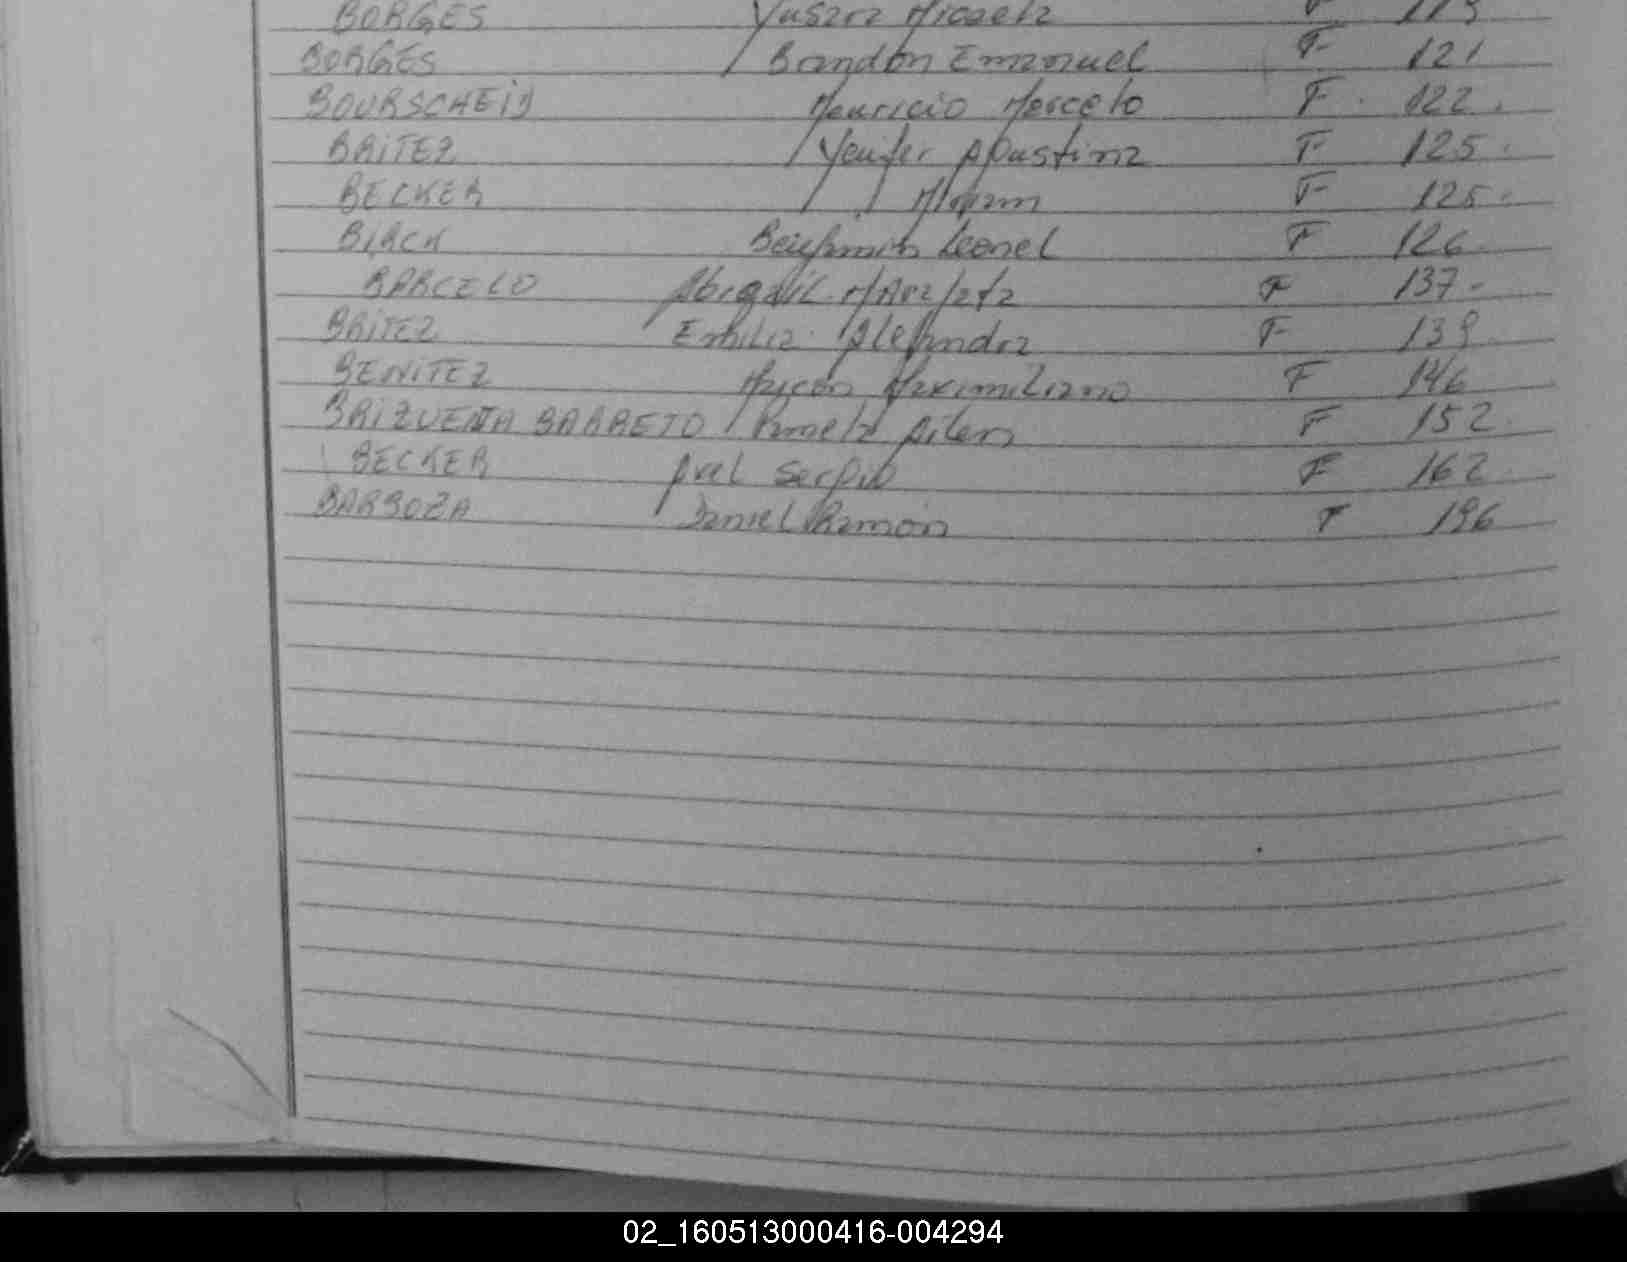 BORGES Yusara Micaela F 119
BORGES Brandon Emanuel F 121
BOURSCHEID Mauricio Marcelo F. 122.
BRITEZ Yenifer Agustina F 125.
BECKER Miriam F 125.
BIRCK Benjamin Leonel F 126.
BARCELO Abigail F 137.
BRITEZ Emilia Alejandra F 139
BENITEZ Maicon Maximiliano F 146
BRIZUENA BARRETO Pamela Ailen F 152.
BECKER Axel Sergio F 162
BARBOZA Daniel Ramon F 196
02_160513000416-004294